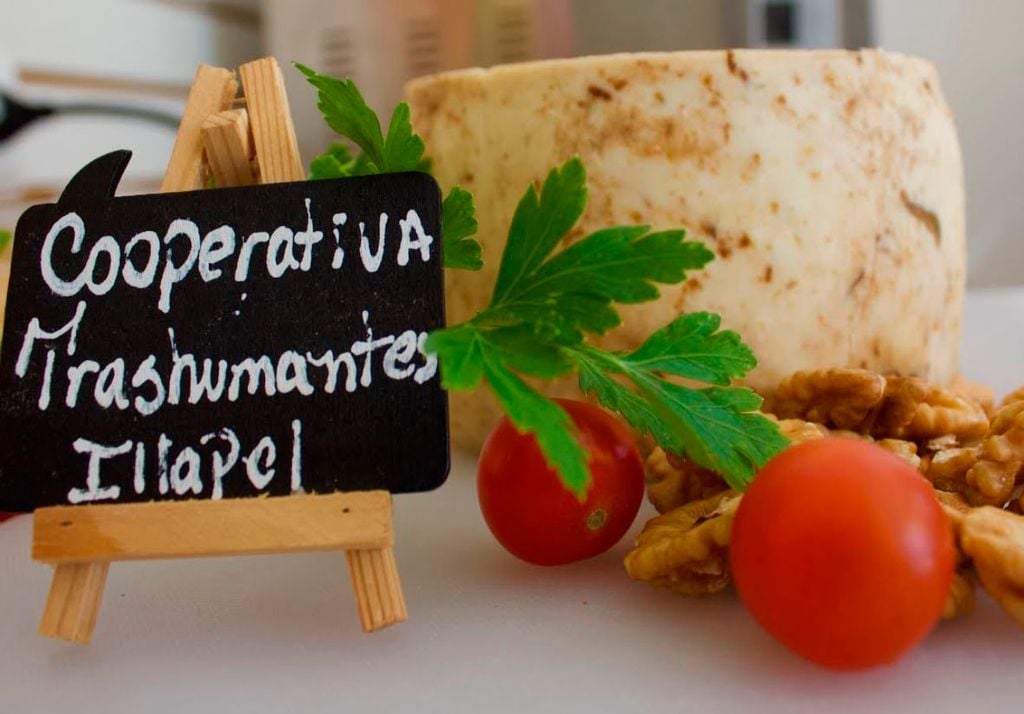 Cooperativa
Trashumantes
Illapel